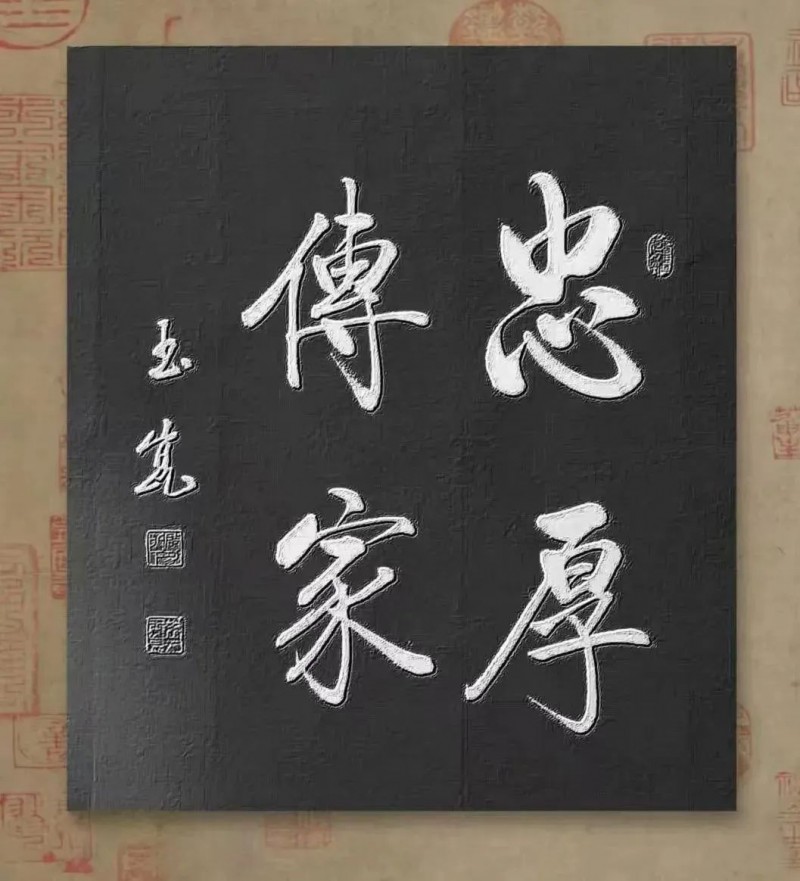 忠厚
傳家
玉寬